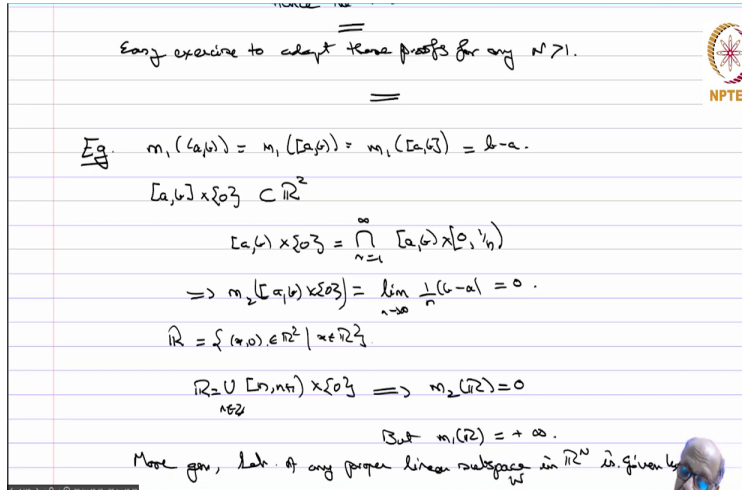 Easy exercise to adapt these proofs for any N>1.
NPTE
Eg. m₁((a,b)) = m₁([a,b)) = m₁([a,b]) = b-a.
[a,b]×{0} ⊂ ℝ²
[a,b)×{0} = ⋂_{n=1}^{∞} [a,b)×[0,1/n)
=> m₂([a,b)×{0}) = lim_{n→∞} 1/n (b-a) = 0.
ℝ = {(x,0) ∈ ℝ² | x∈ℝ}
ℝ = ∪_{n∈ℤ} [n,n+1)×{0} ⟹ m₂(ℝ)=0
But m₁(ℝ) = +∞.
More gen, Leb. of any proper linear subspace W in ℝᴺ is given